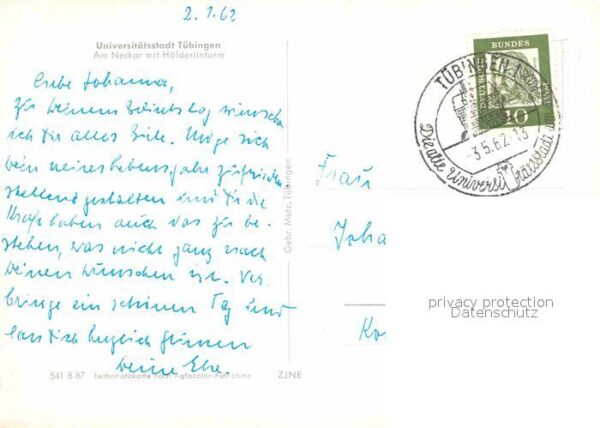 2.5.62
Universitätsstadt Tübingen
Am Neckar mit Hölderlinturm
Liebe Johanna,
zu Deinem Geburtstag wünsche
ich Dir alles Gute. Möge sich
Dein neues Lebensjahr zufrieden
stellend gestalten und Du die
Kraft haben auch das zu be-
stehen, was nicht ganz nach
Deinen Wünschen ist. Ver
bringe ein schönen Tag und
lass Dich herzlich grüssen
Deine Else.
541 B 87 Farbfotokarte nach Agfacolor-Aufnahme ZJNE
Gebr. Metz, Tübingen
DEUTSCHE BUNDESPOST
10
TÜBINGEN 1
-3.5.62-13
Die alte Universitätsstadt
Frau
Joha
Ko
privacy protection
Datenschutz